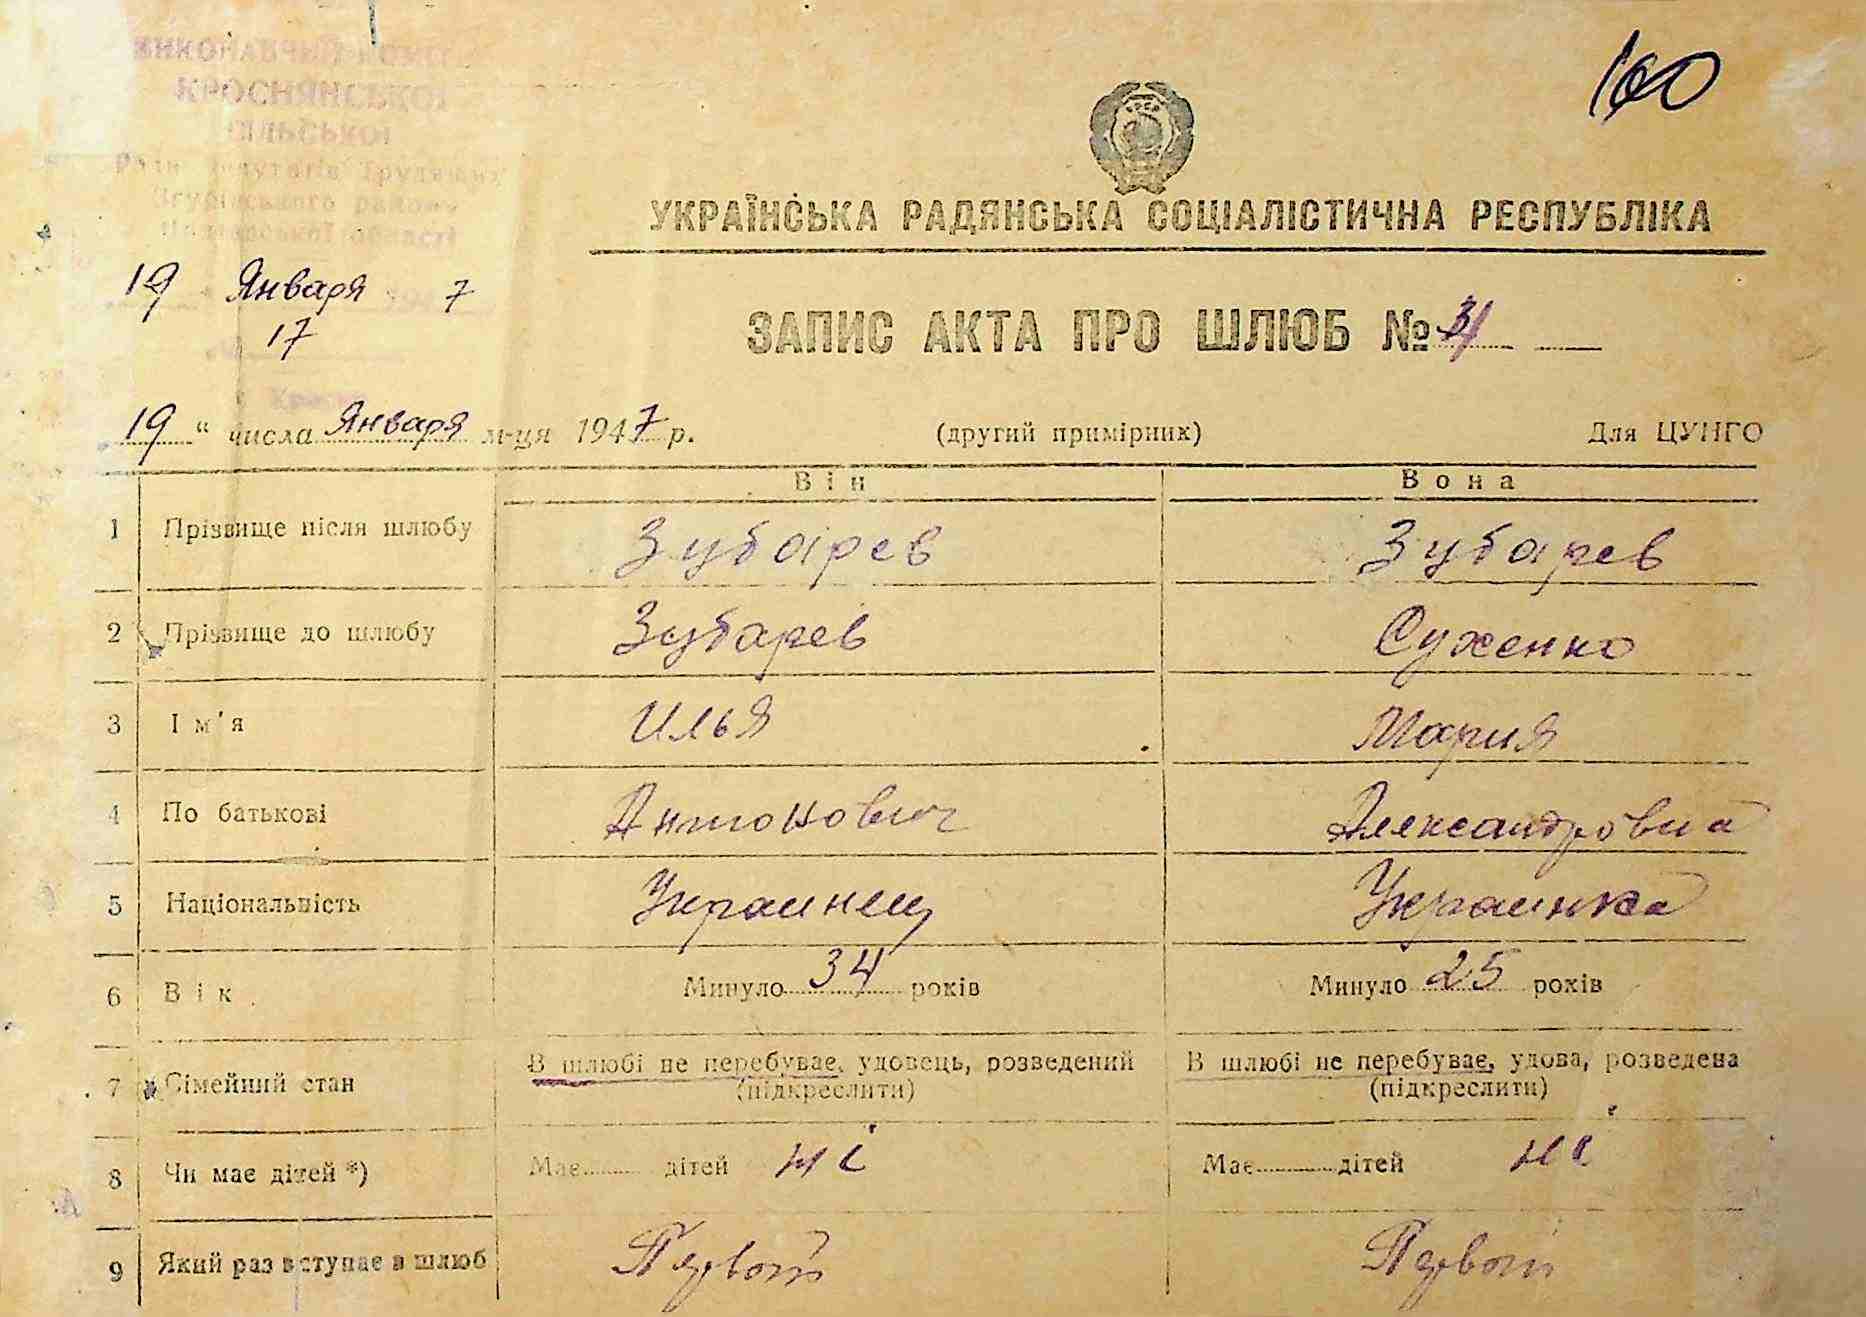 ВИКОНАВЧИЙ КОМІТ
КРОСНЯНСЬКОЇ
СІЛЬСЬКОЇ
Ради депутатів Трудящих
Згурівського району
Полтавської області
160
УКРАЇНСЬКА РАДЯНСЬКА СОЦІАЛІСТИЧНА РЕСПУБЛІКА
19 Января 1947
17
ЗАПИС АКТА ПРО ШЛЮБ №
19 " числа Января м-ця 1947 р. (другий примірник) Для ЦУНГО
Він Вона
1 Прізвище після шлюбу Зубарев Зубарев
2 Прізвище до шлюбу Зубарев Сухенко
3 Ім'я Илья Мария
4 По батькові Антонович Александровна
5 Національність Украинец Украинка
6 Вік Минуло 34 років Минуло 25 років
7 Сімейний стан В шлюбі не перебуває, удовець, розведений В шлюбі не перебуває, удова, розведена
(підкреслити) (підкреслити)
8 Чи має дітей *) Має дітей ні Має дітей ні
9 Який раз вступає в шлюб Первой Первой